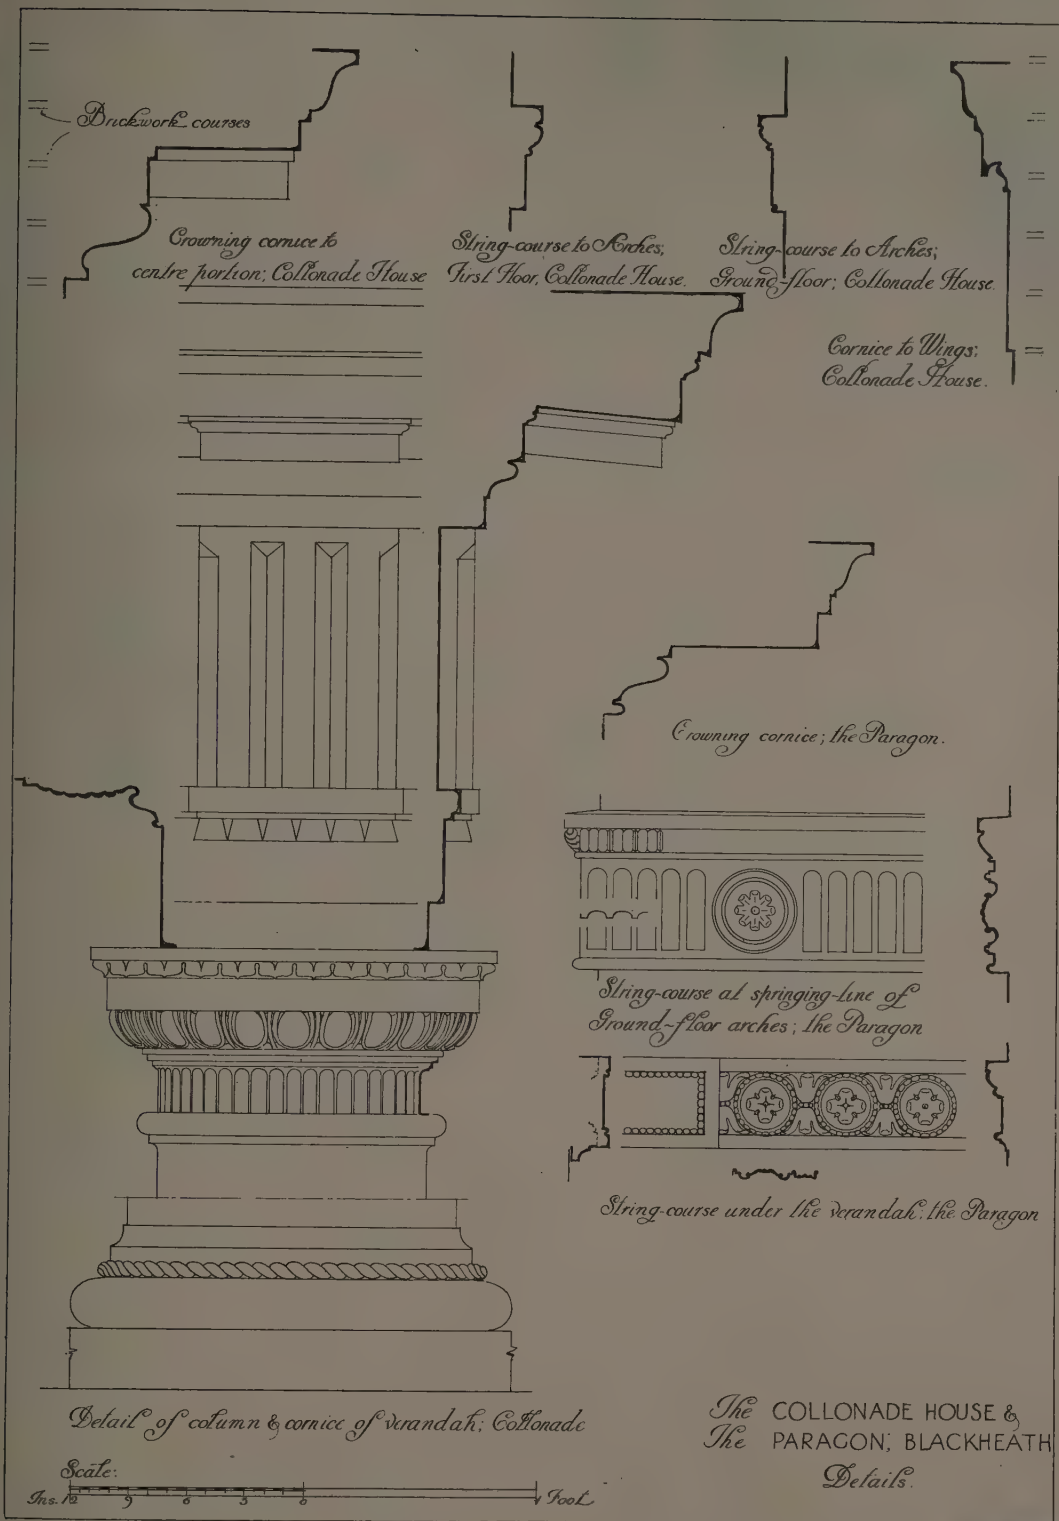 Brickwork courses
Crowning cornice to
centre portion; Collonade House
String-course to Arches;
First Floor, Collonade House.
String-course to Arches;
Ground-floor; Collonade House.
Cornice to Wings;
Collonade House.
Crowning cornice; the Paragon.
String-course at springing-line of
Ground-floor arches; the Paragon
String-course under the verandah: the Paragon
Detail of column & cornice of verandah; Collonade
Scale:
Ins. 12 9 6 3 0 1 Foot
The COLLONADE HOUSE &
The PARAGON; BLACKHEATH
Details.